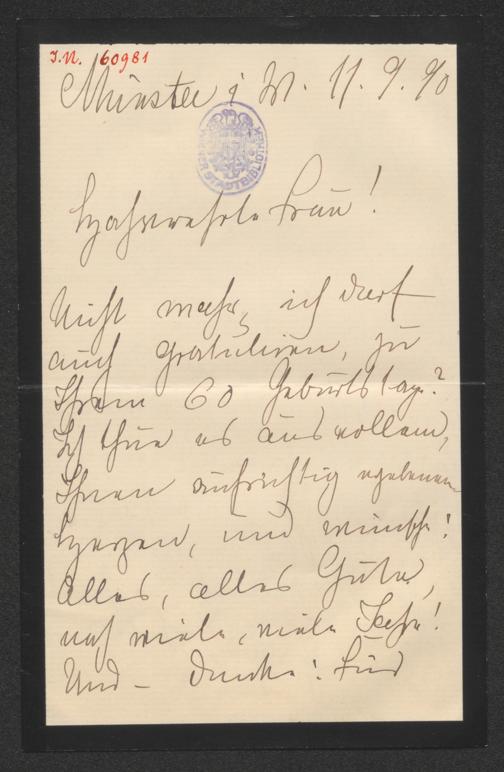 J.N. 60981
Münster i W. 11. 9. 90
WIENER STADTBIBLIOTHEK
Hochverehrte Frau!
Nicht wahr, ich darf
auch gratuliren, zu
Ihrem 60 Geburtstage?
Ich thue es aus vollem,
Ihnen aufrichtig ergebenem
Herzen, und wünsche:
Alles, alles Gute,
noch viele, viele Jahre!
Und – danke: Für